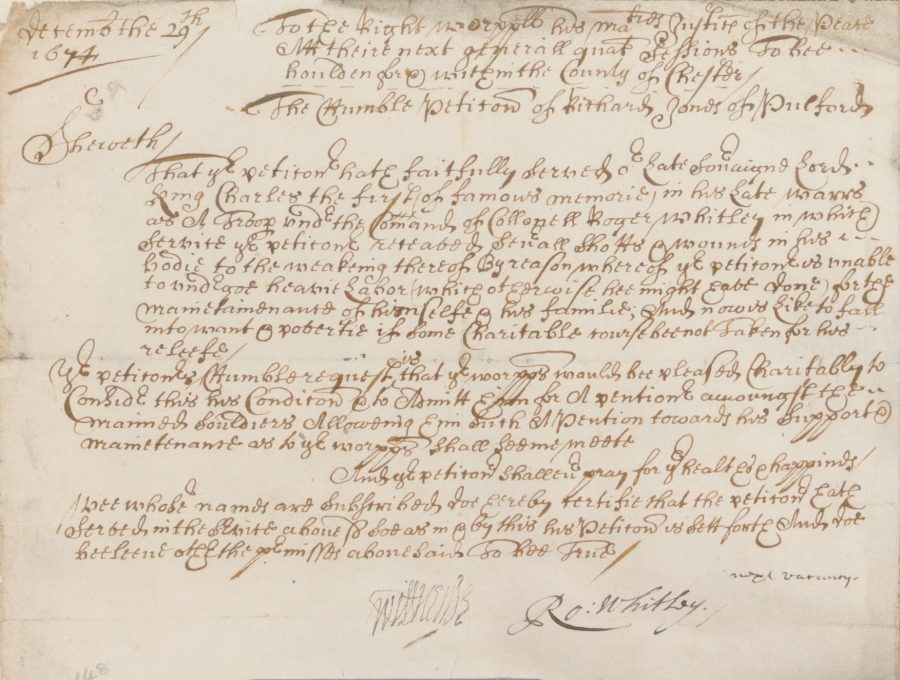 December the 29th
1674
To the Right worpll his maties Justices of the Peace
Att theire next generall quat Sessions To bee
houlden for & within the County of Chester
The Humble Peticon of Richard Jones of Pulford
Sheweth
That yr peticonr hath faithfully Served or Late Soveaigne Lord
King Charles the first (of famous memorie) in his Late warrs
as A Troopr undr the Comand of Collonell Roger Whitley in which
Service yr peticonr receaved Sevrall Shotts & wounds in his
bodie to the weaking thereof By reason whereof yr peticonr is unable
to undrgoe heavie Labor (which otherwise hee might have done) for the
maintainenance of himselfe & his familie, And now is Like to fall
into want & povertie if Some Charitable course bee not Taken for his
releefe
Yr peticonrs Humble request is that yr worpps would bee pleased Charitably to
Considr this his Condition & to Admitt him for A pentionr amoungst the
maimed Souldiers Alloweing him Such A Pention towards his Support &
maintetenance as to yr worpps Shall Seeme meete
And yr peticonr Shall evr pray for yr healthes & happines
Wee whose names are Subscribed doe hereby certifie that the peticonr hath
Served in the Service above sd soe as in & by this his Peticon is Sett forth And doe
beeleeve all the prmisses above Said To bee True
next vacancy.
Ro: Whitley.
148